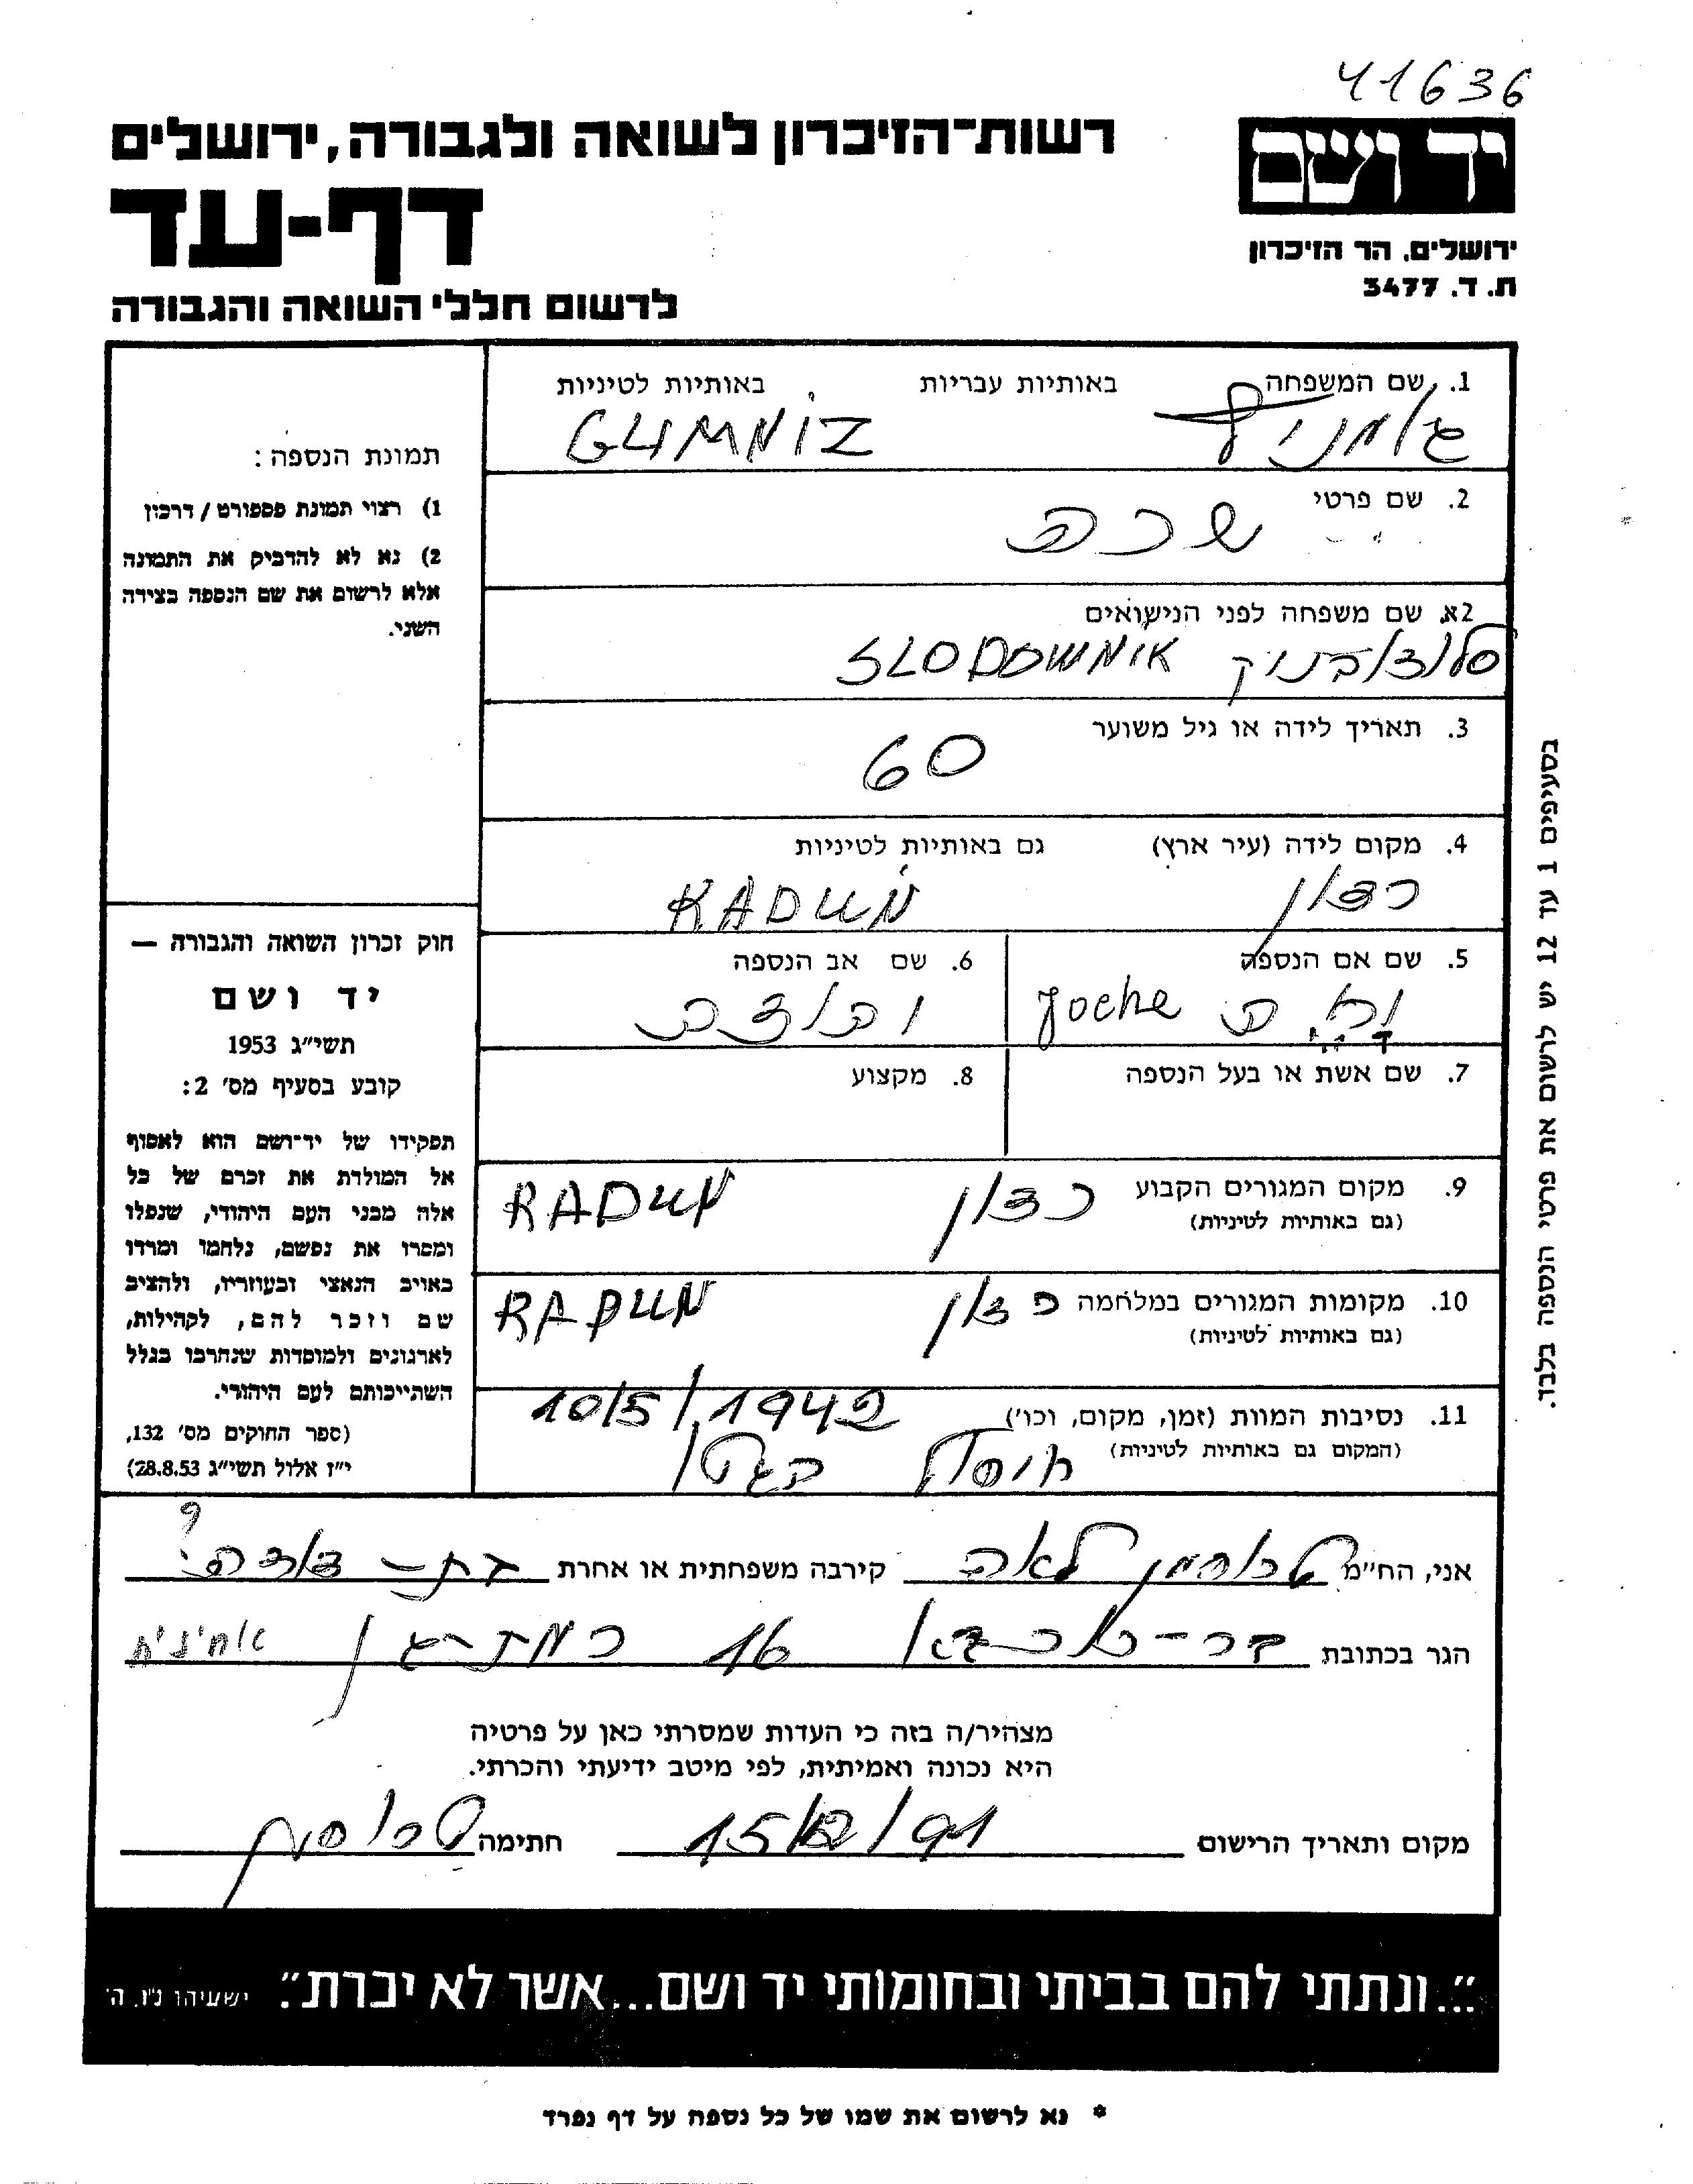 41636
יד ושם
ירושלים, הר הזיכרון
ת. ד. 3477
רשות־הזיכרון לשואה ולגבורה, ירושלים
דף-עד
לרשום חללי השואה והגבורה
1. שם המשפחה באותיות עבריות באותיות לטיניות
GLIMNIZ
2. שם פרטי
שרה
2א. שם משפחה לפני הנישואים
סלודובניק SLODOWNIK
3. תאריך לידה או גיל משוער
60
4. מקום לידה (עיר ארץ) גם באותיות לטיניות
רדון RADUN
5. שם אם הנספה
Joche
6. שם אב הנספה
7. שם אשת או בעל הנספה
8. מקצוע
9. מקום המגורים הקבוע
(גם באותיות לטיניות)
רדון RADUN
10. מקומות המגורים במלחמה
(גם באותיות לטיניות)
רדון RADUN
11. נסיבות המוות (זמן, מקום, וכו')
(המקום גם באותיות לטיניות)
10/5/1942
חוסל בגטו
תמונת הנספה:
1) רצוי תמונת פספורט / דרכון
2) נא לא להדביק את התמונה
אלא לרשום את שם הנספה בצידה
השני.
חוק זכרון השואה והגבורה —
יד ושם
תשי״ג 1953
קובע בסעיף מס׳ 2:
תפקידו של יד־ושם הוא לאסוף
אל המולדת את זכרם של כל
אלה מבני העם היהודי, שנפלו
ומסרו את נפשם, נלחמו ומרדו
באויב הנאצי ובעוזריו, ולהציב
שם וזכר להם, לקהילות,
לארגונים ולמוסדות שנחרבו בגלל
השתייכותם לעם היהודי.
(ספר החוקים מס׳ 132,
י״ז אלול תשי״ג 28.8.53)
בסעיפים 1 עד 12 יש לרשום את פרטי הנספה בלבד.
אני, הח״מ לאה קירבה משפחתית או אחרת בת-דודה ?
הגר בכתובת 16 רמת-גן
מצהיר/ה בזה כי העדות שמסרתי כאן על פרטיה
היא נכונה ואמיתית, לפי מיטב ידיעתי והכרתי.
מקום ותאריך הרישום חתימה
״...ונתתי להם בביתי ובחומותי יד ושם...אשר לא יכרת״. ישעיהו נ״ו, ה׳
* נא לרשום את שמו של כל נספה על דף נפרד